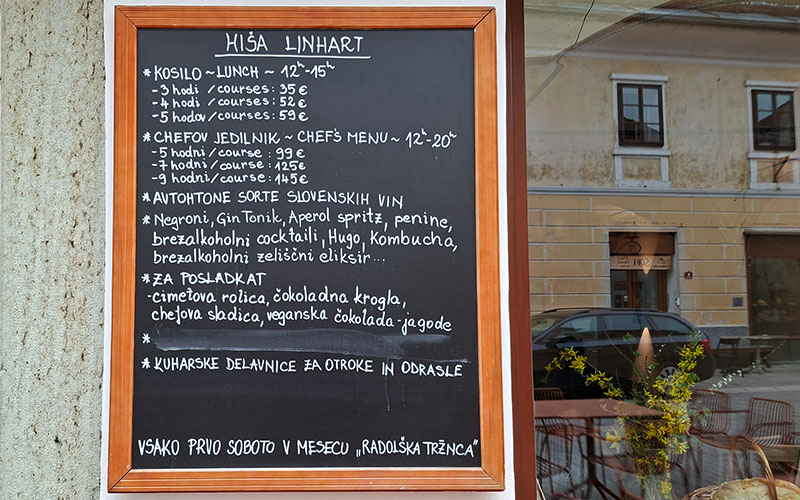 HIŠA LINHART
* KOSILO ~ LUNCH ~ 12ʰ-15ʰ
-3 hodi /courses: 35 €
-4 hodi /courses: 52 €
-5 hodov/courses: 59 €
* CHEFOV JEDILNIK ~ CHEF'S MENU ~ 12ʰ-20ʰ
-5 hodni/course: 99 €
-7 hodni/course: 125 €
-9 hodni/course: 145 €
* AVTOHTONE SORTE SLOVENSKIH VIN
* Negroni, Gin Tonik, Aperol spritz, penine,
brezalkoholni cocktaili, Hugo, Kombucha,
brezalkoholni zeliščni eliksir...
* ZA POSLADKAT
-cimetova rolica, čokoladna krogla,
chefova sladica, veganska čokolada-jagode
*
* KUHARSKE DELAVNICE ZA OTROKE IN ODRASLE
VSAKO PRVO SOBOTO V MESECU „RADOLŠKA TRŽNCA"